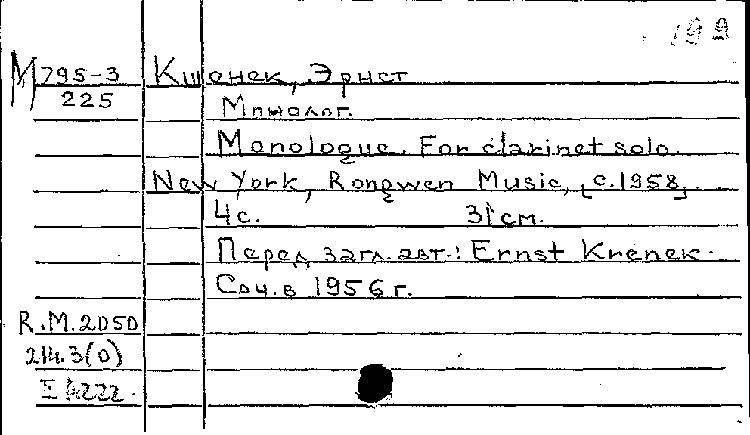 199
М 795-3 Кшенек, Эрнст
225
Монолог.
Monologue. For clarinet solo.
New York, Rongwen Music, [c.1958].
4 с. 31 см.
Перед загл. авт.: Ernst Krenek.
Соч. в 1956 г.
R.M.2050
214.3(0)